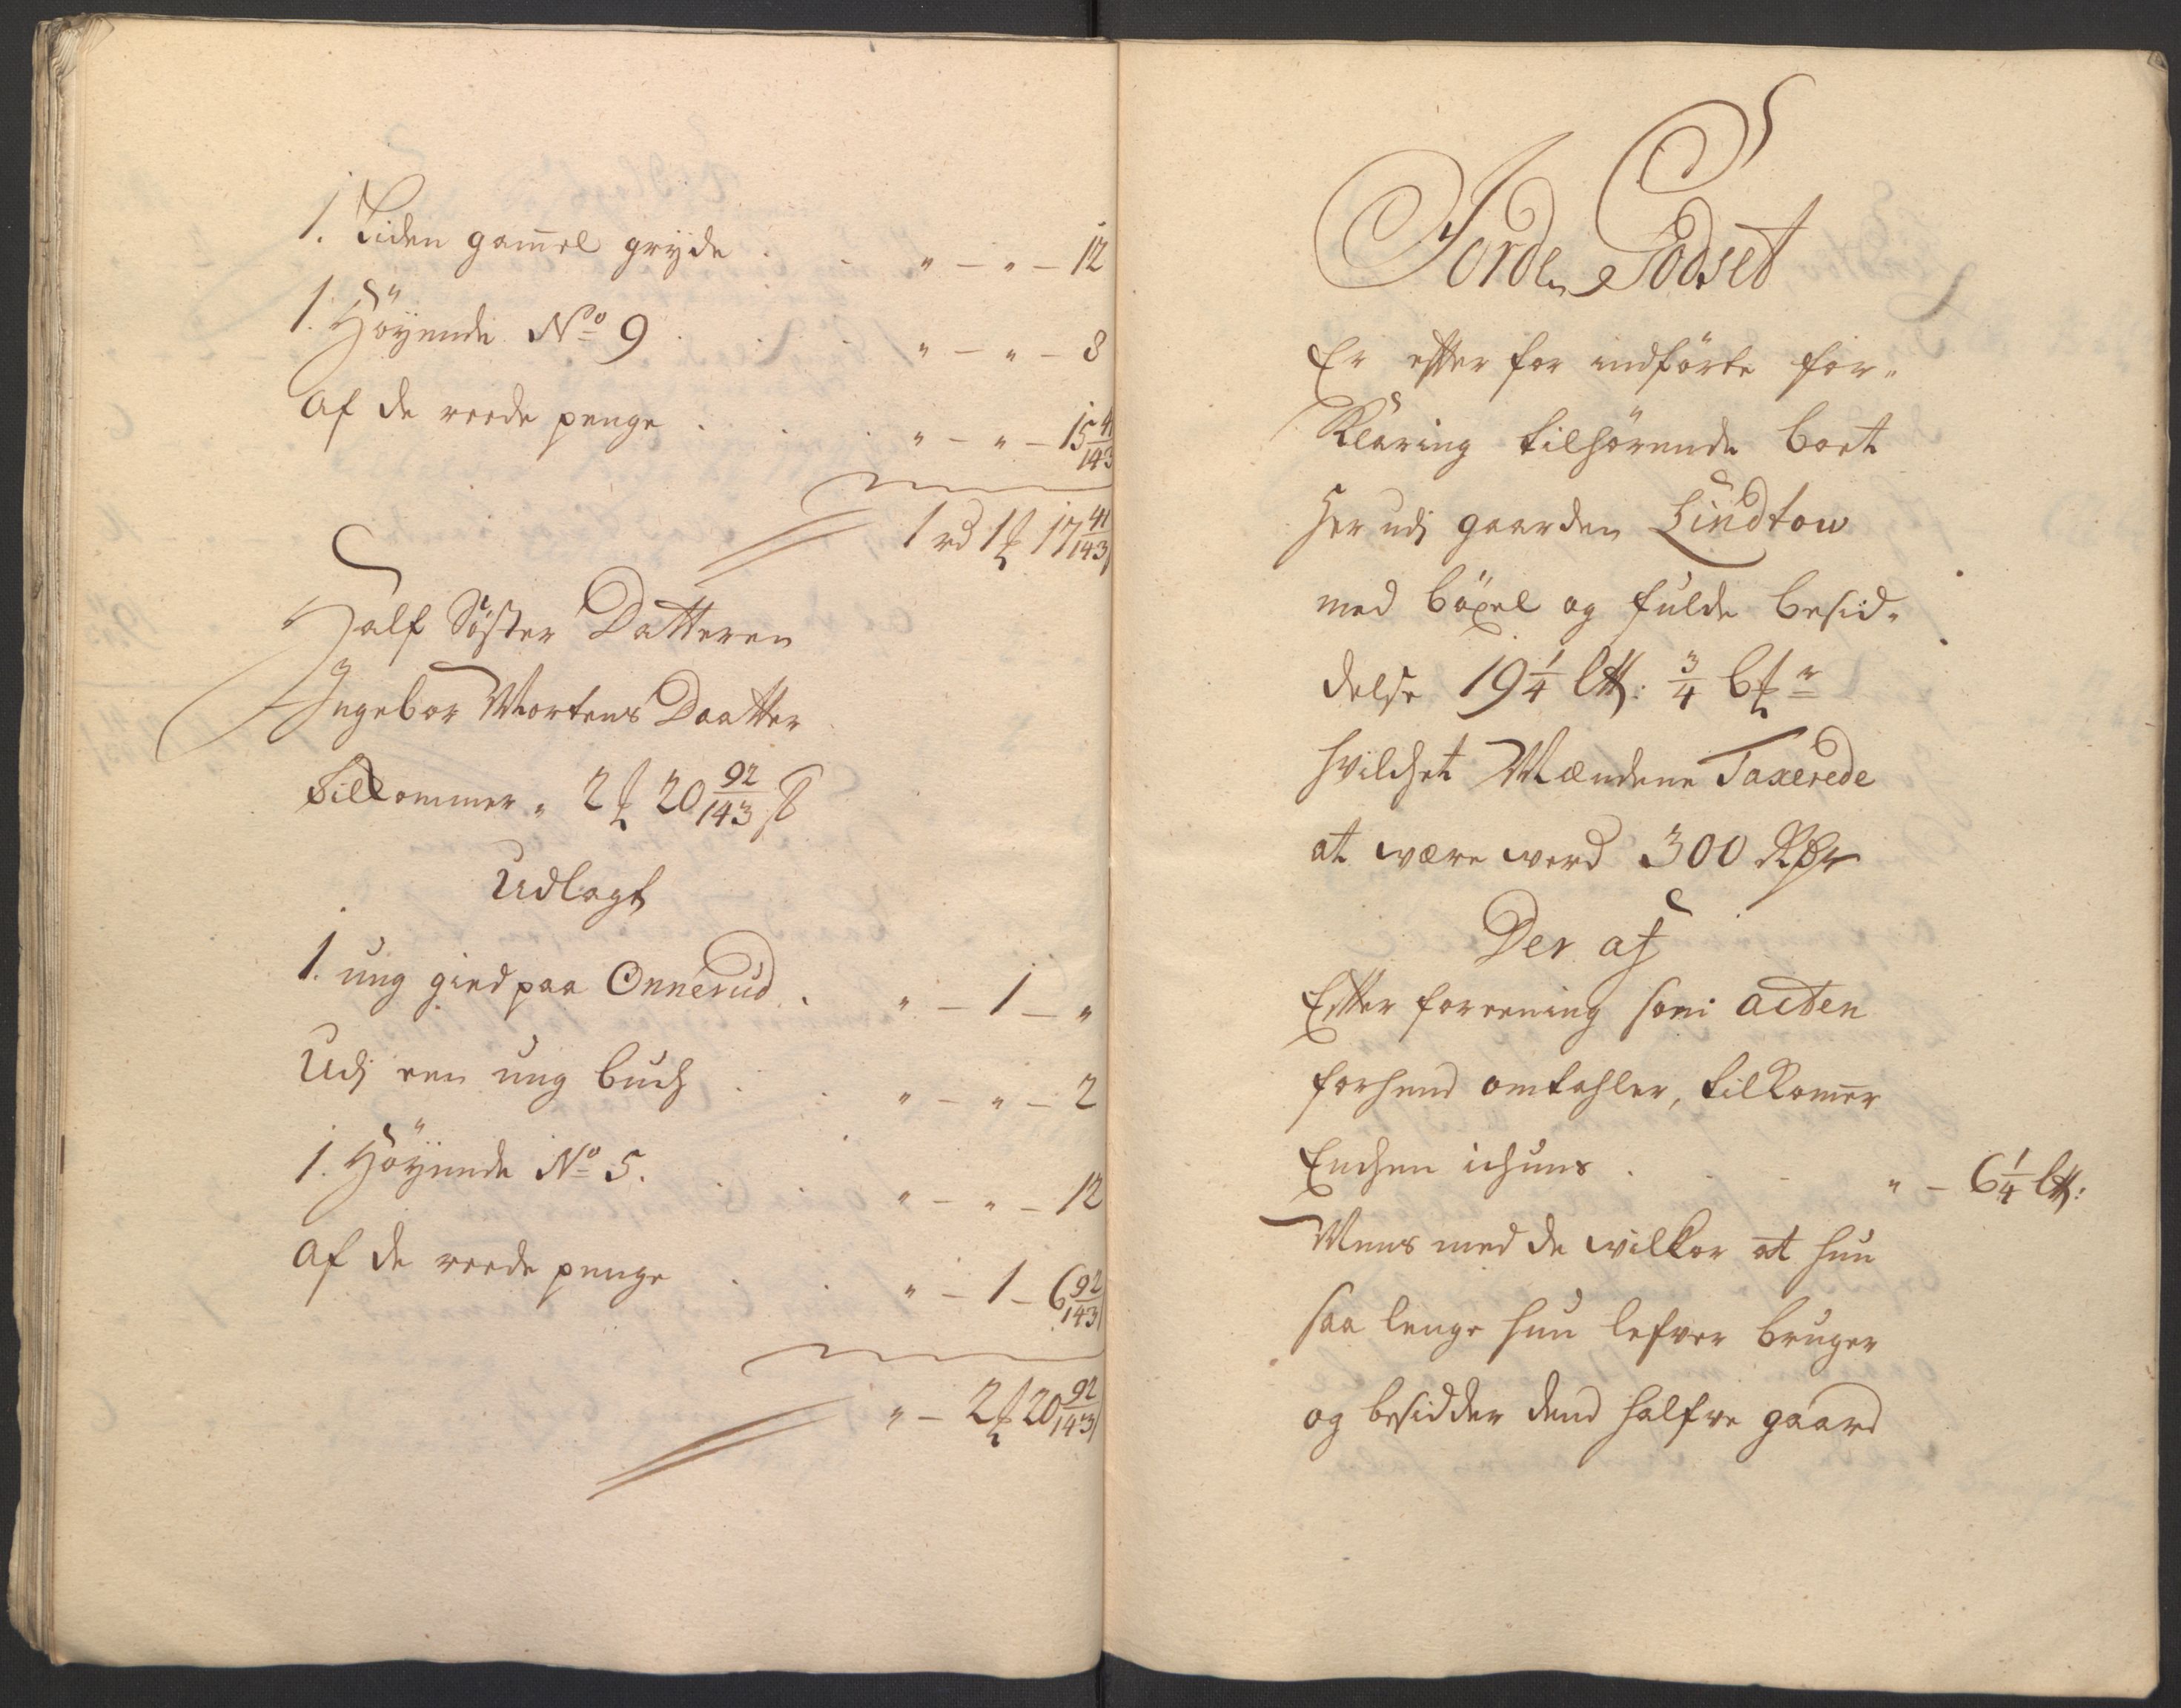 1. Liden gam̄el gryde . . " – " – 12
1. Höyende No 9 . . . " – " – 8
Af de reede penge . . . " – " – 15 41/143
1 rd 1 ₰ 17 41/143
Half Söster Datteren
Ingebor Mortens Daatter
tilkommer " 2 ₰ 20 92/143 ß
Udlagt
1. ung gied paa Onnerud . " – 1 – "
Udj een ung buch . . " – " – 2
1. Höyende No 5. . . " – " – 12
Af de reede penge . . " – 1 – 6 92/143
" – 2 ₰ 20 92/143
Jorde Godset
Er efter for indförte for-
Klaring tilhörende boet
her udj gaarden Lindtow
med böxel og fulde besid-
delse 19 1/4 l℔: 3/4 b
hvilchet Mændene Taxerede
at være werd 300 Rdr
Der af
Efter foreening som acten
forhend omtahler, tilkom̄er
Enchen ichuns . . . " – 6 1/4 l℔:
Mens med de wilkor at hun
saa lenge hun lefver bruger
og besidder dend halfve gaard